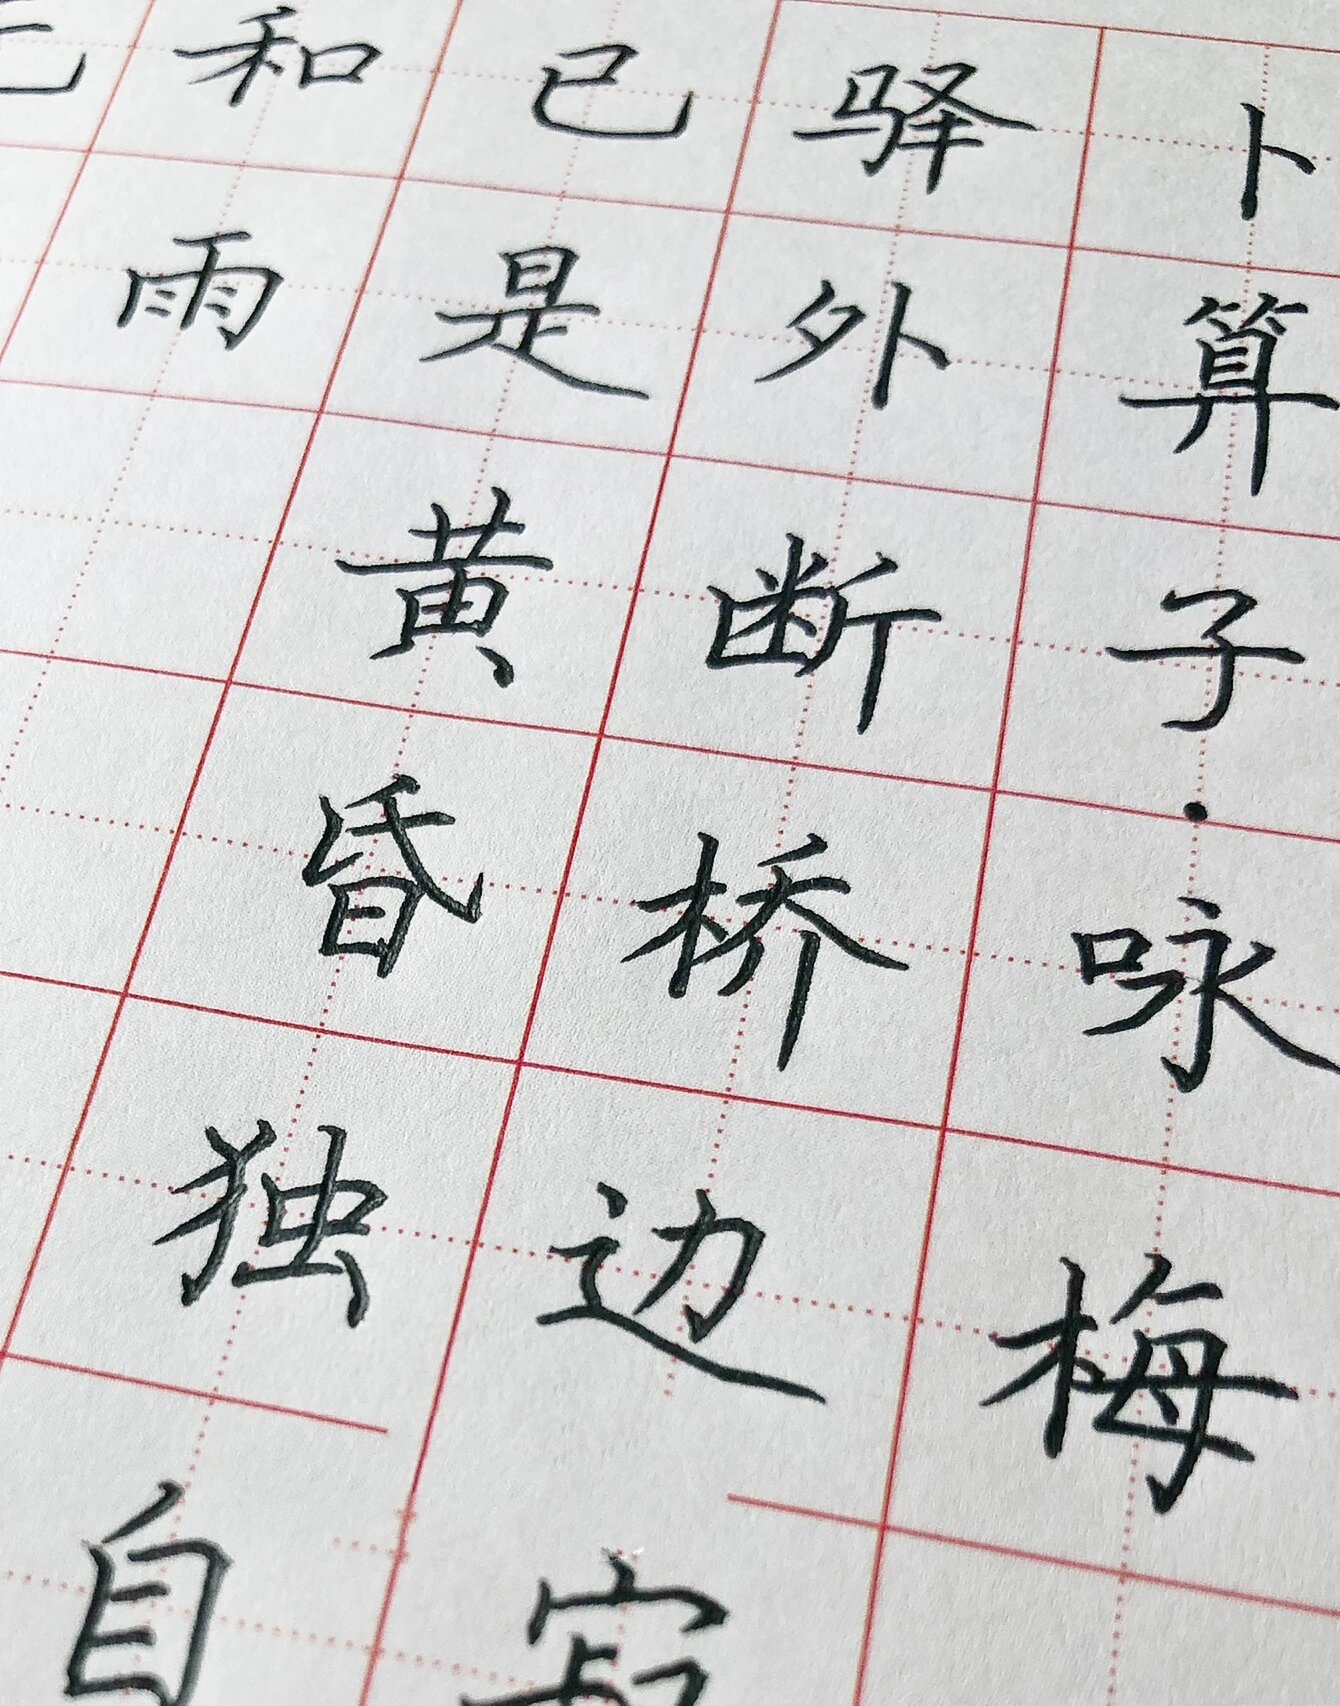 卜算子·咏梅
驿外断桥边寂
已是黄昏独自
和雨